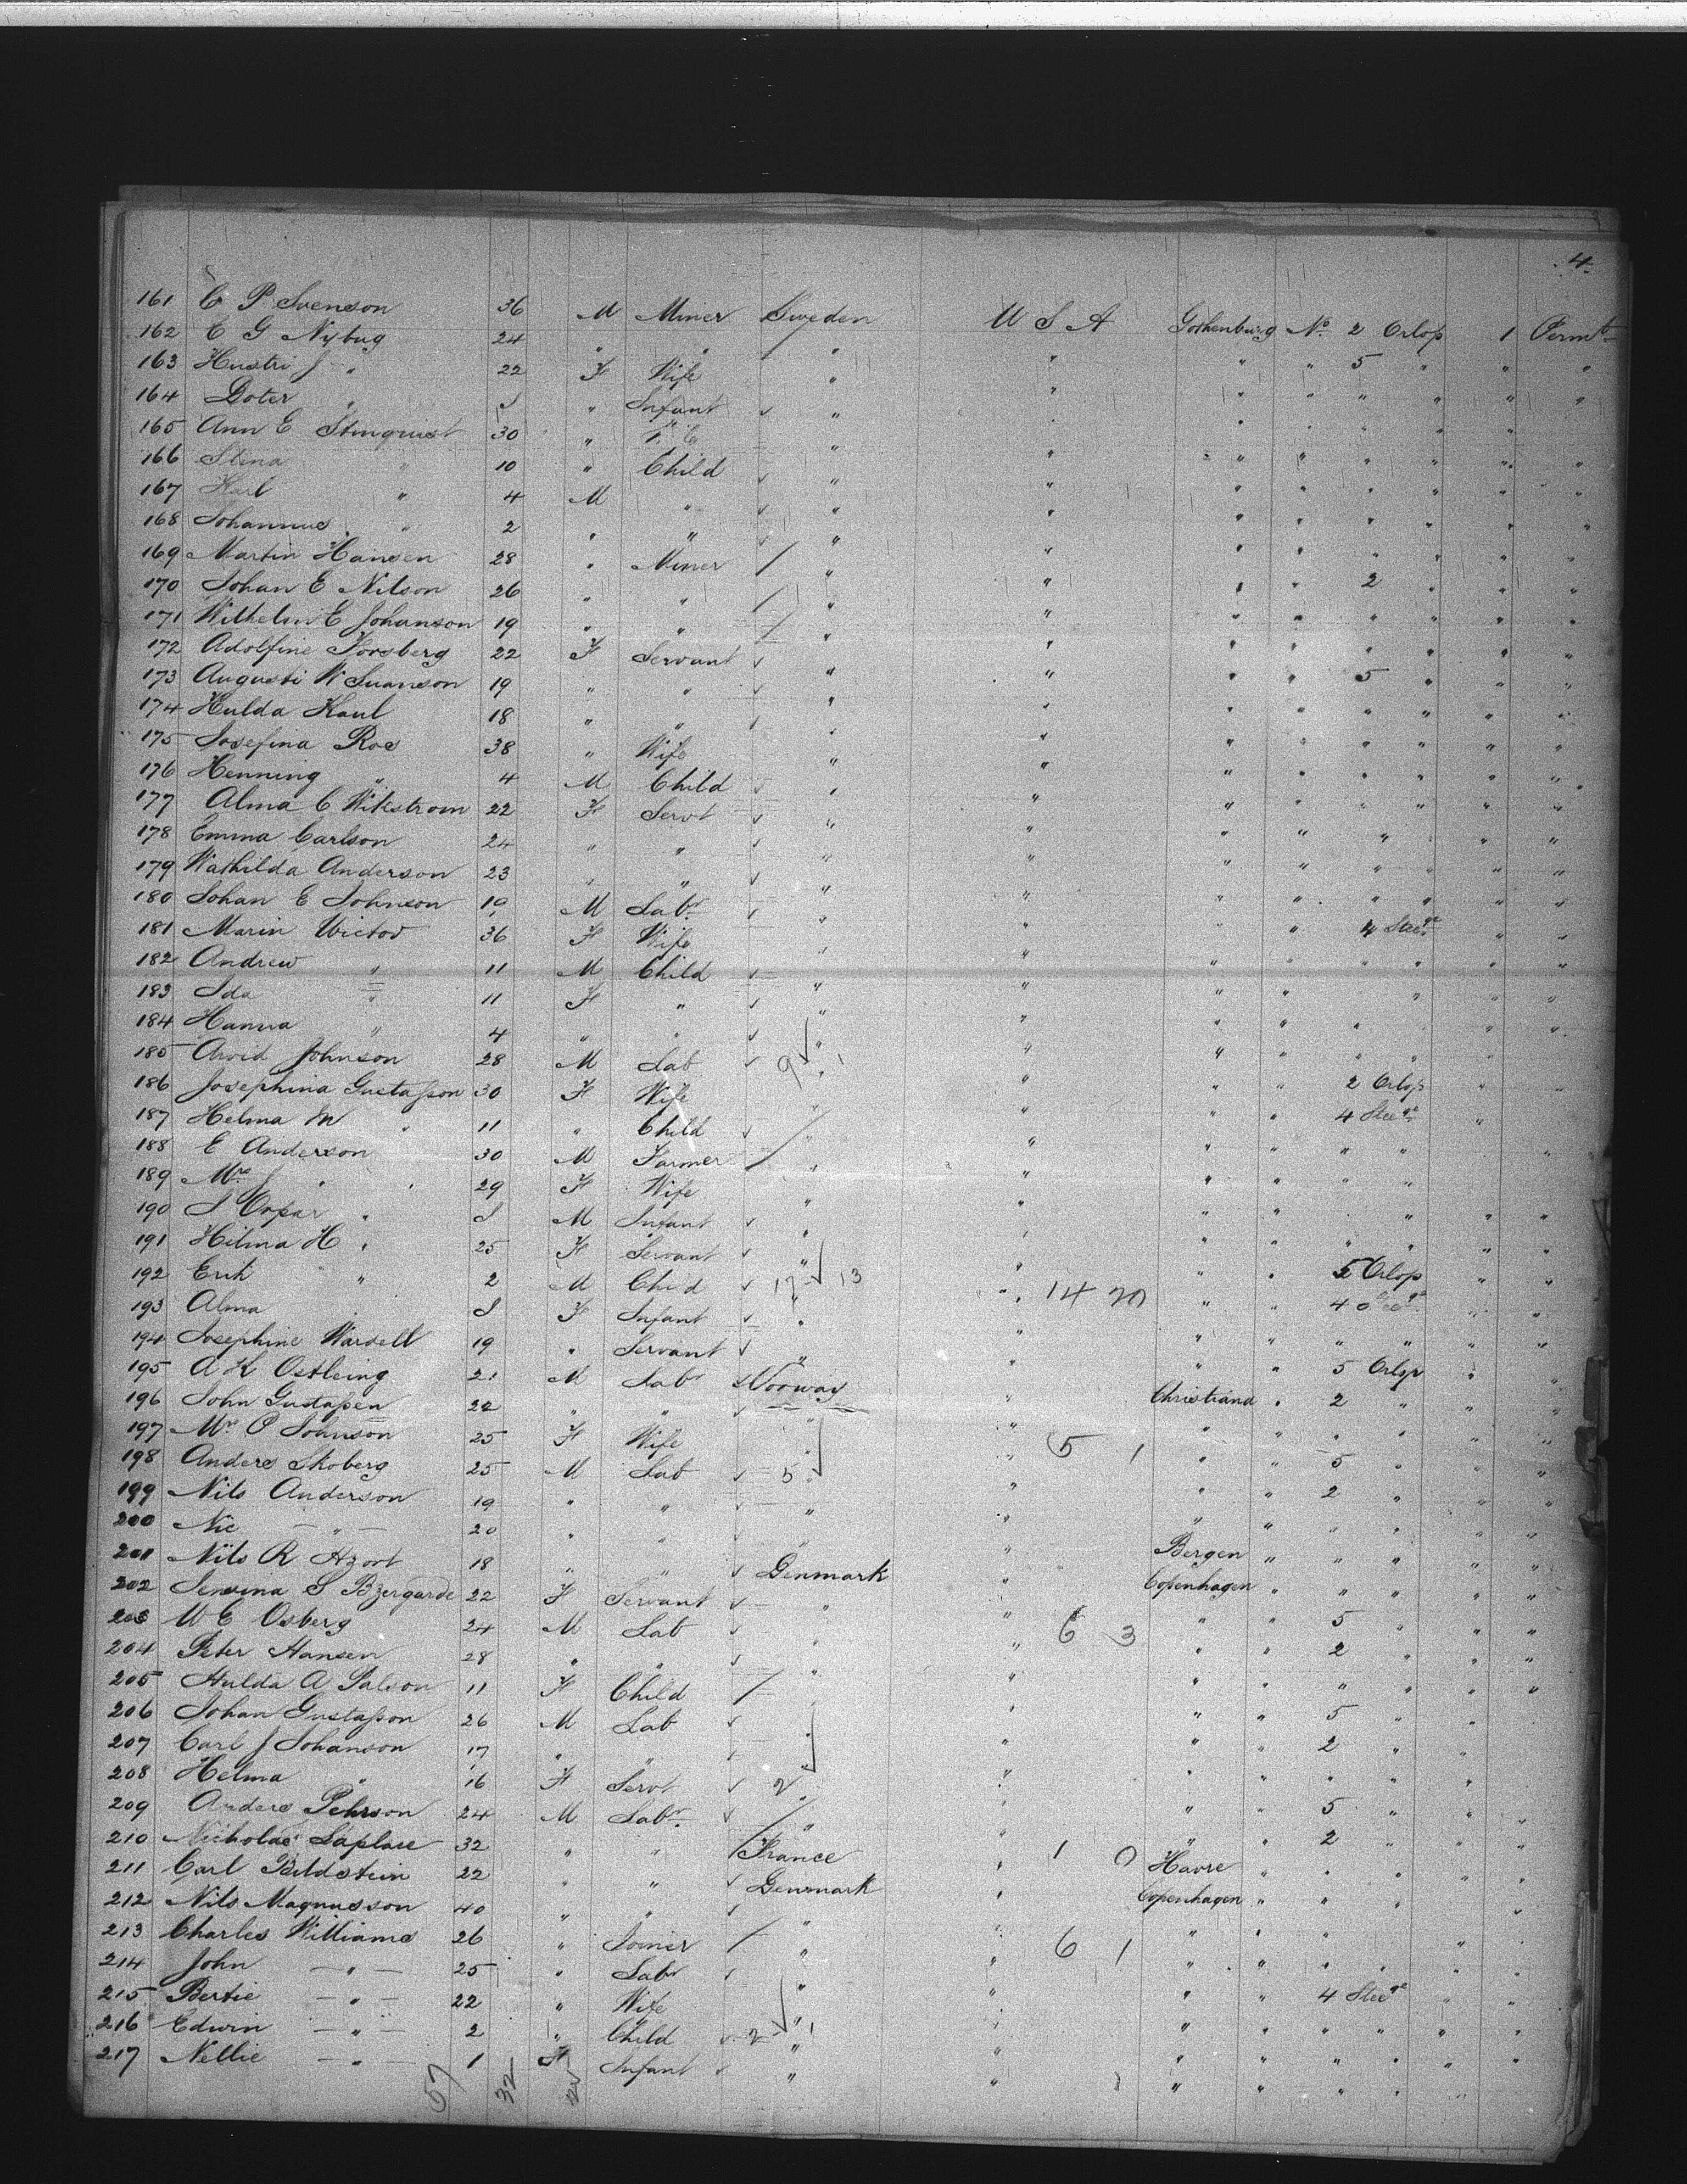 4.
161 C P Svenson 36 M Miner Sweden U S A Gothenburg No. 2 Orlop 1 Permt
162 C G Nybug 24 " " " " " " 5 " " "
163 Hustri J " 22 F Wife " " " " " " " "
164 Doter " " Infant " " " " " " "
165 Ann E Stinquist 30 " " " " " " " "
166 Stina " 10 " Child " " " " " " " "
167 Karl " 4 M " " " " " " " " "
168 Johannus " 2 " " " " " " " " " "
169 Martin Hansen 28 " Miner " " " " 2 " " "
170 Johan E Nilson 26 " " " " " " " " " "
171 Wilhelm E Johanson 19 " " " " " " " " " "
172 Adolfine Forsberg 22 F Servant " " " " 5 " " "
173 Augusti W Suanson 19 " " " " " " " " " "
174 Hulda Kaul 18 " " " " " " " " " "
175 Josefina Ros 38 " Wife " " " " " " " "
176 Henning " 4 M Child " " " " " " " "
177 Alma C Wikstrom 22 F Servt " " " " " " " "
178 Emma Carlson 24 " " " " " " " " " "
179 Mathilda Anderson 23 " " " " " " " " " "
180 Johan E Johnson 19 M Labr " " " " 4 Steege " "
181 Marin Wictor 36 F Wife " " " " " " " "
182 Andrew " 11 M Child " " " " " " " "
183 Ida " 11 F " " " " " " " " "
184 Hanna " 4 " " " " " " " " " "
185 Arvid Johnson 28 M Lab 9 " 1 " " " 2 Orlop " "
186 Josephina Gustafson 30 F Wife " " " " 4 Steege "
187 Helma M " 11 " Child " " " " " " "
188 E Anderson 30 M Farmer " " " " " " "
189 Mrs J " " 29 F Wife " " " " " " "
190 " M Infant " " " " " " " "
191 Hilma H " 25 F Servant " " " " 5 Orlop " "
192 Erik " 2 M Child 17 13 " " 14 20 " " 4 Steege " "
193 Alma F Infant " " " " " " " "
194 Josephine Wardell 19 " Servant " " " " 5 Orlop " "
195 A K Ostleing 21 M Labr Norway " Christiana " 2 " " "
196 John Gustafsen 22 " " " " " " " " " "
197 Mrs P Johnson 25 F Wife " " 5 1 " " 5 " " "
198 Anders Skoberg 25 M Lab 5 " " " " 2 " " "
199 Nils Anderson 19 " " " " " " " " " "
200 Nic — " — 20 " " " " Bergen " " " " "
201 Nils R Hzort 18 " " Denmark " Copenhagen " " " " "
202 Jensina S Bzergarde 22 F Servant " " " " 5 " " "
203 W E Osberg 24 M Lab " " 6 3 " " 2 " " "
204 Peter Hansen 28 " " " " " " " " " "
205 Hulda A Palson 11 F Child " " " " 5 " "
206 Johan Gustafson 26 M Lab " " " " 2 " "
207 Carl J Johanson 17 " " " " " " " " "
208 Helma " 16 F Servt 2 " " " " 5 " "
209 Anders Pehrson 24 M Labr " " " " 2 " " "
210 Nicholas Laplase 32 " " France " 1 0 Havre " " " " "
211 Carl Bildstein 22 " " Denmark " Copenhagen " " " "
212 Nils Magnusson 40 " " " " " " " "
213 Charles Williams 26 " Joiner " " 6 1 " " " " "
214 John — " — 25 " Labr " " " " 4 Steege " "
215 Bertie — " — 22 " Wife " " " " " " " "
216 Edwin — " — 2 " Child 2 " 1 " " " " " "
217 Nellie — " — 1 F Infant " " " " " "
57 32